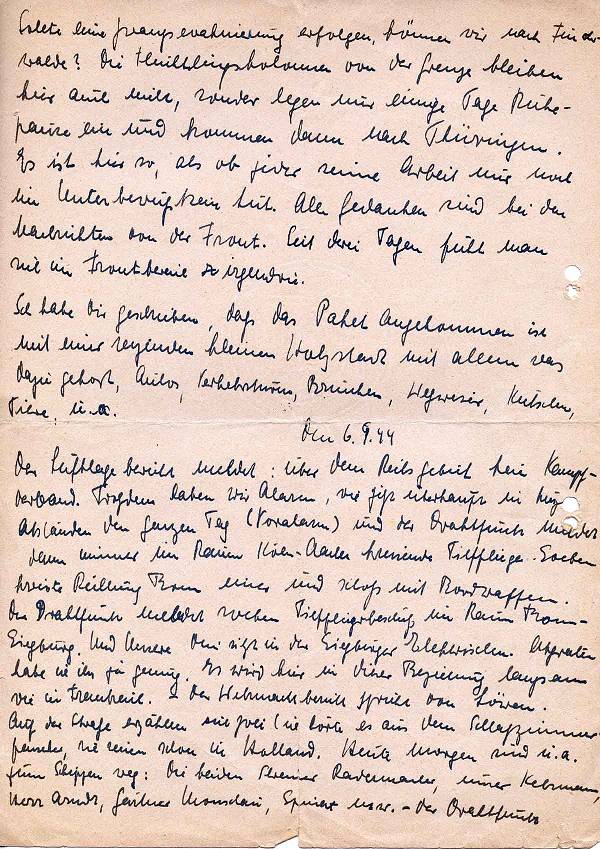 Sollte eine Zwangsevakuierung erfolgen, können wir nach Finster-
walde? Die Flüchtlingskolonnen von der Grenze bleiben
hier auch nicht, sonder legen nur einige Tage Ruhe-
pause ein und kommen dann nach Thüringen.
Es ist hier so, als ob jeder seine Arbeit nur noch
im Unterbewußtsein tut. Alle Gedanken sind bei den
Nachrichten von der Front. Seit drei Tagen fühlt man
sich im Frontbereich so irgendwie.
Ich habe Dir geschrieben, daß das Paket angekommen ist
mit einer reizenden kleinen Holzstadt mit allem was
dazu gehört, Autos, Verkehrsturm, Brunnen, Wegweiser, Kutschen,
Tiere, u.a.
Den 6.9.44
Der Luftlagebericht meldet: über dem Reichsgebiet kein Kampf-
verband. Trotzdem haben wir Alarm, wie jetzt überhaupt in kurzen
Abständen den ganzen Tag (Voralarm) und der Drahtfunk meldet
dann immer im Raum Köln-Aachen kreisende Tiefflieger. Soeben
kreiste Richtung Bonn einer und schoß mit Bordwaffen.
Der Drahtfunk meldet soeben Tieffliegerbeschuß im Raum Bonn-
Siegburg. Und unsere Omi sitzt in der Siegburger Elektrischen. Abgeraten
habe ich ihr ja genug. Es wird hier in dieser Beziehung langsam
wie in Frankreich. - Der Wehrmachtbericht spricht von Löwen.
Auf der Straße erzählen sich zwei (ich hörte es aus dem Schlafzimmer-
fenster, sie seien schon in Holland. Heute Morgen sind u.a.
zum Schippen weg: Die beiden Schreiner Rademacher, unser
Herr Arndt, Gärtner usw. - Der Drahtfunk